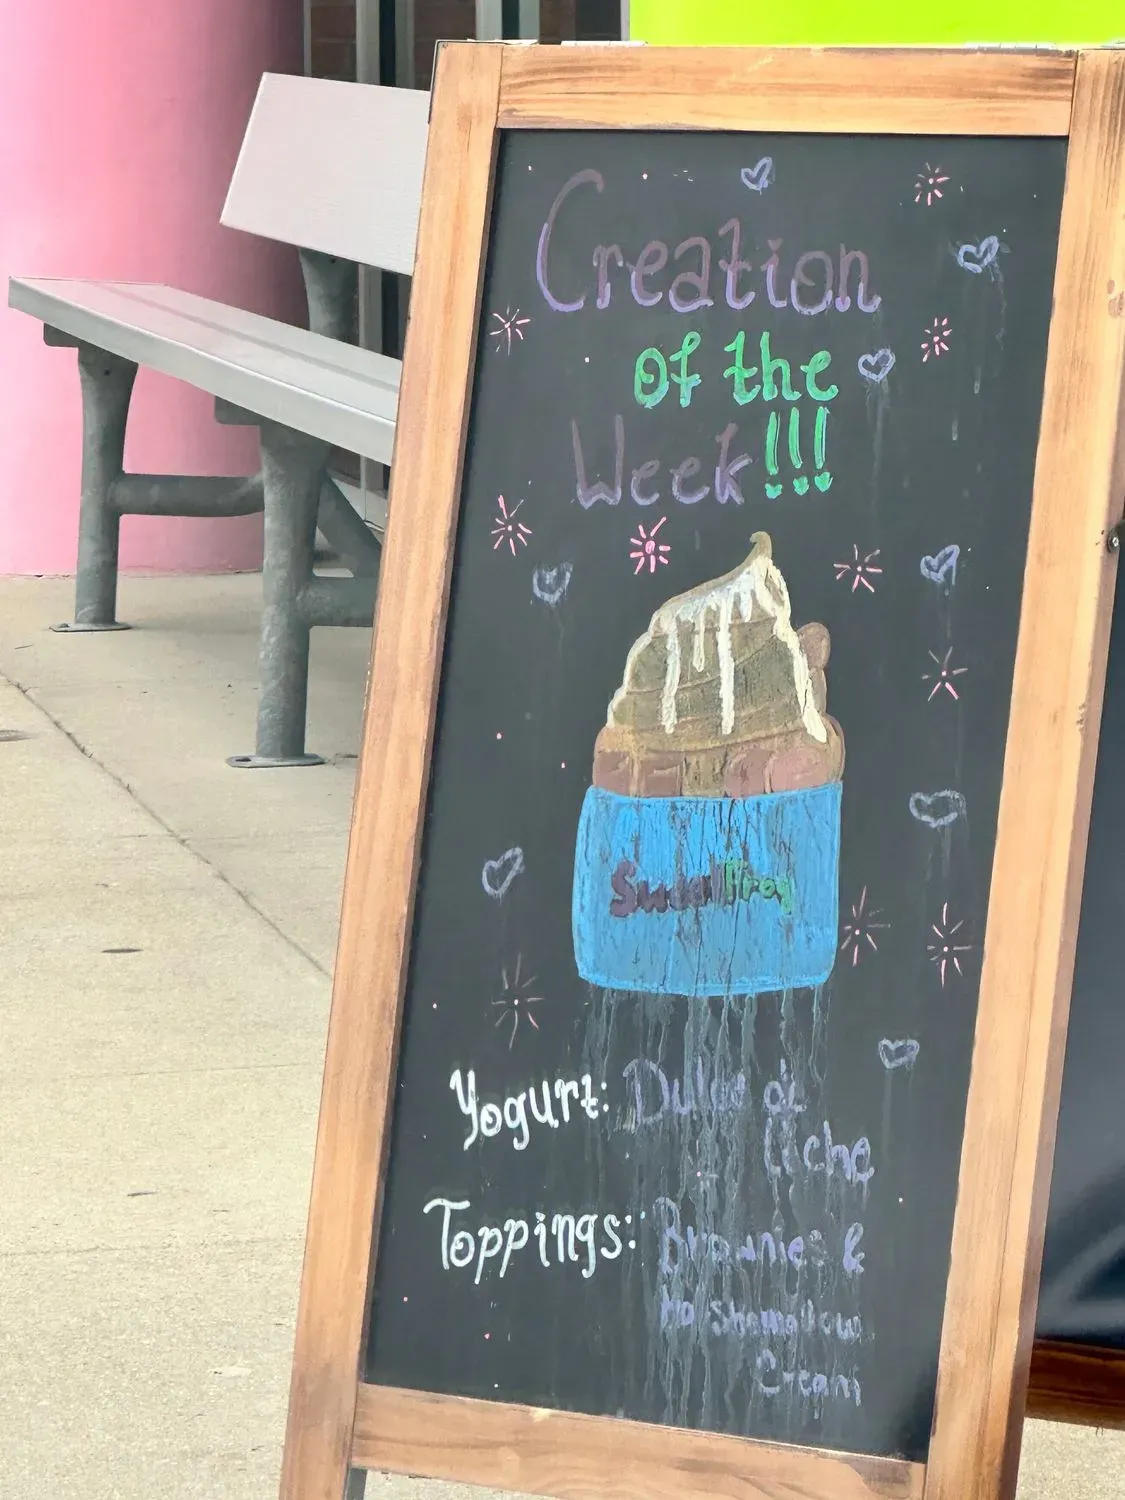 Creation
of the
Week!!!
Sweet Frog
Yogurt: Dulce de
leche
Toppings: Brownies &
Cream